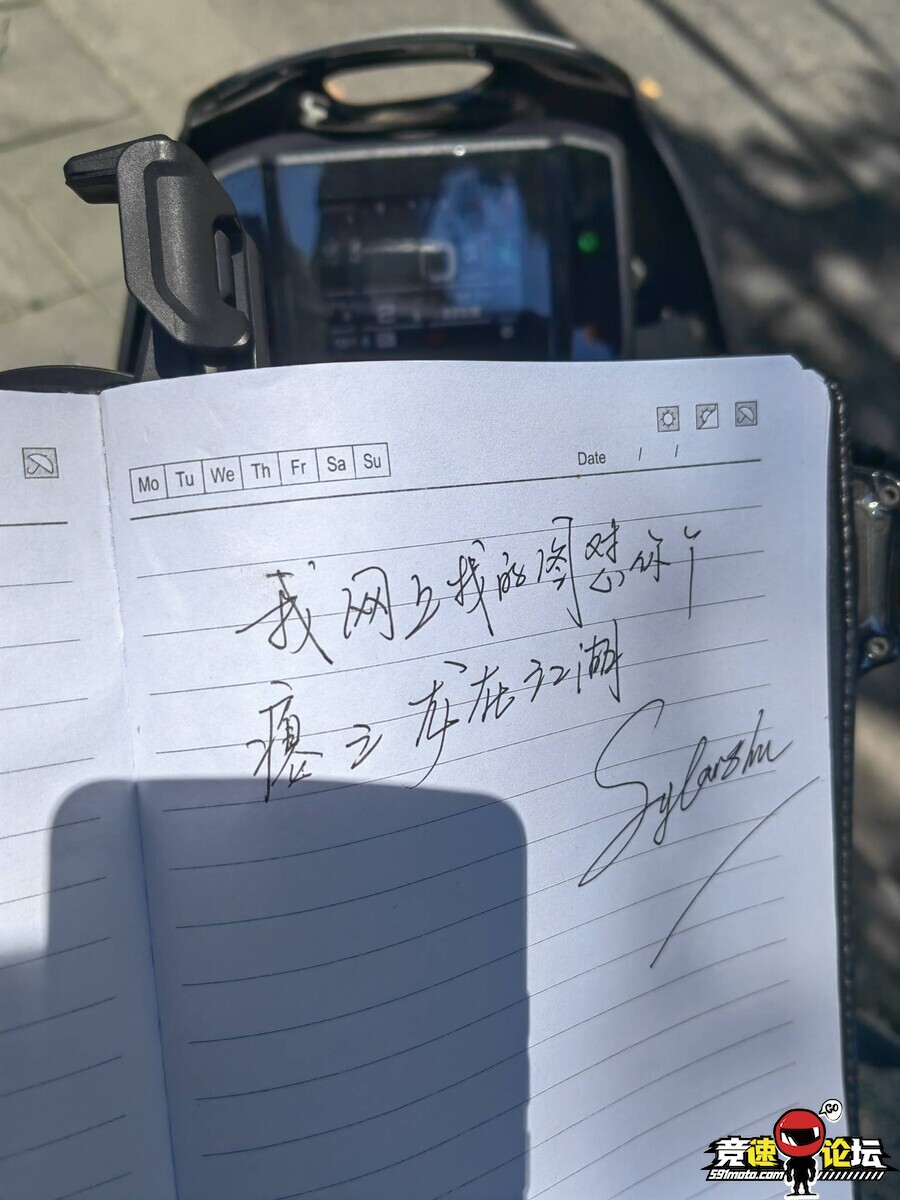 Mo Tu We Th Fr Sa Su
Date / /
我网上找的图怼你个
瘪之 龙在江湖
Sylarshu
GO
竞速论坛
591moto.com